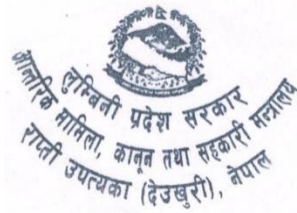 लुम्बिनी प्रदेश सरकार
आन्तरिक मामिला, कानून तथा सहकारी मन्त्रालय
राप्ती उपत्यका (देउखुरी), नेपाल